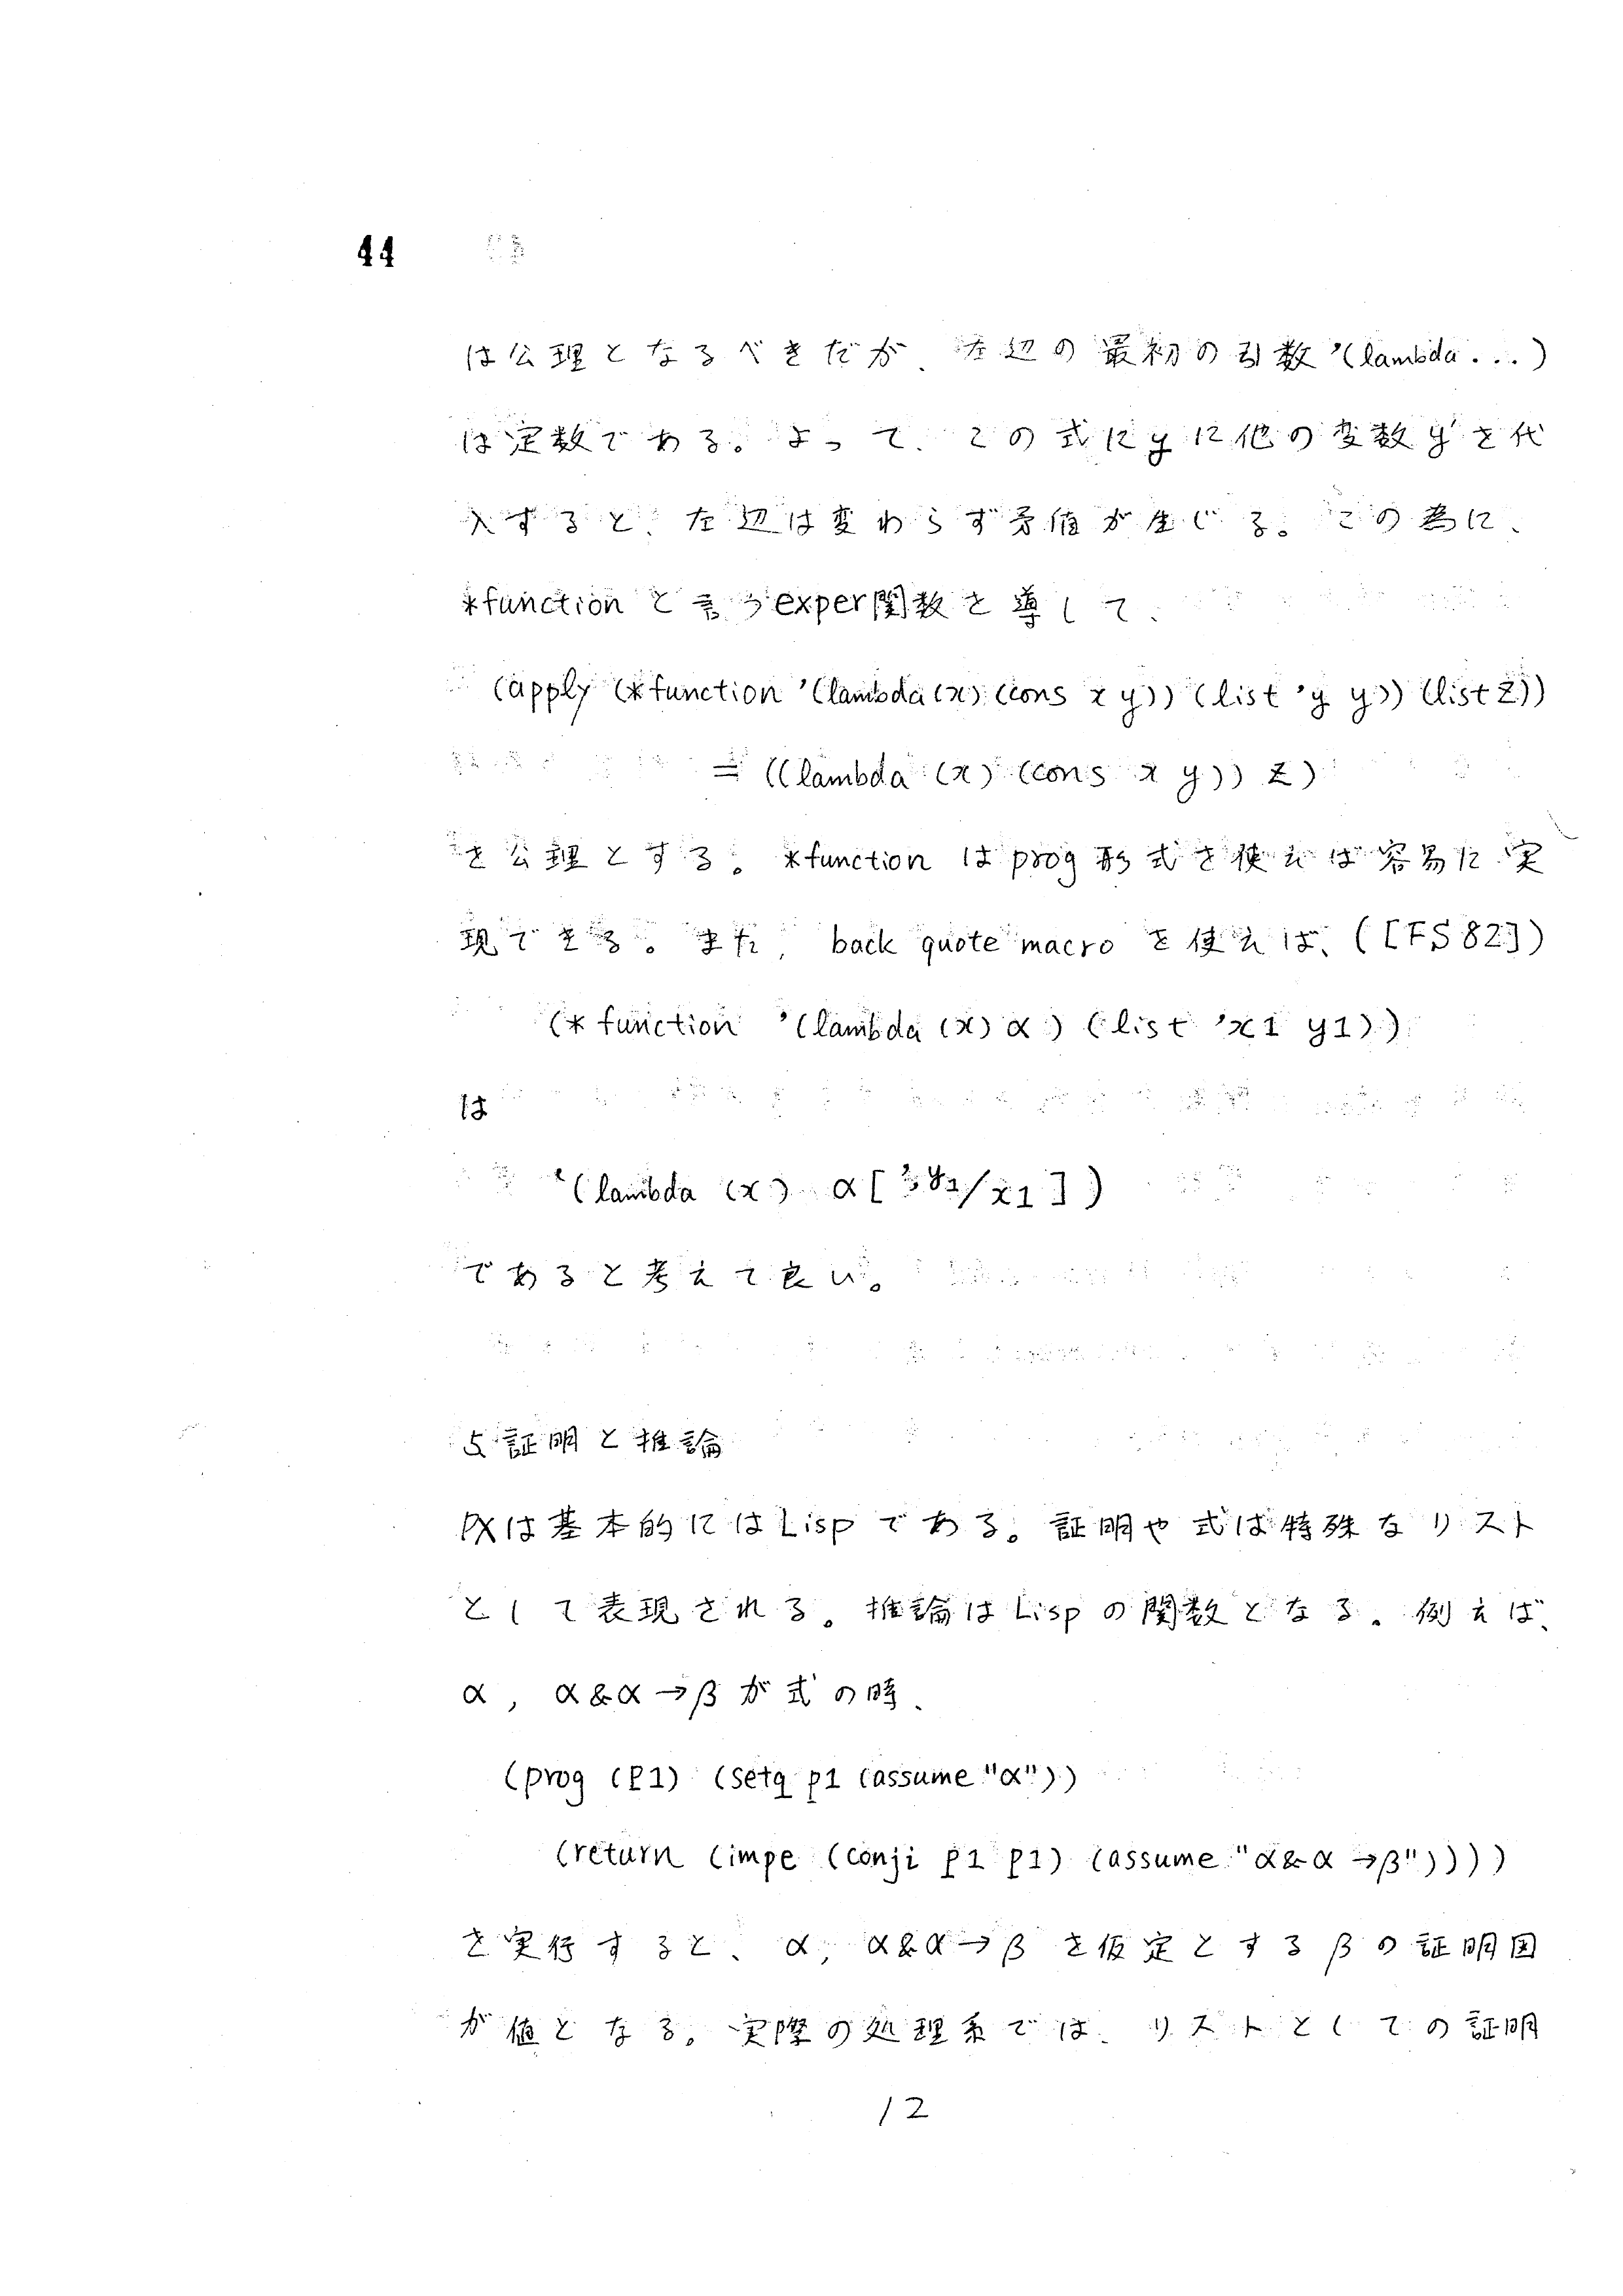 44
は公理となるべきだが、左辺の最初の引数 '(lambda...)
は定数である。よって、この式にyに他の変数y'を代
入すると、左辺は変わらず矛盾が生じる。この為に、
*function と言うexper関数を導して、
(apply (*function '(lambda(x)(cons x y)) (list 'y y)) (list z))
= ((lambda (x) (cons x y)) z)
を公理とする。*function は prog 形式を使えば容易に実
現できる。また、 back quote macro を使えば、([FS82])
(* function '(lambda (x) α) (list 'x1 y1))
は
`(lambda (x) α[ /x1])
であると考えて良い。
5 証明と推論
PXは基本的にはLisp である。証明や式は特殊なリスト
として表現される。推論は Lisp の関数となる。例えば、
α, α&α→β が式の時、
(prog (p1) (setq p1 (assume "α"))
(return (impe (conji p1 p1) (assume "α&α→β"))))
を実行すると、α, α&α→β を仮定とするβの証明図
が値となる。実際の処理系では、リストとしての証明
12